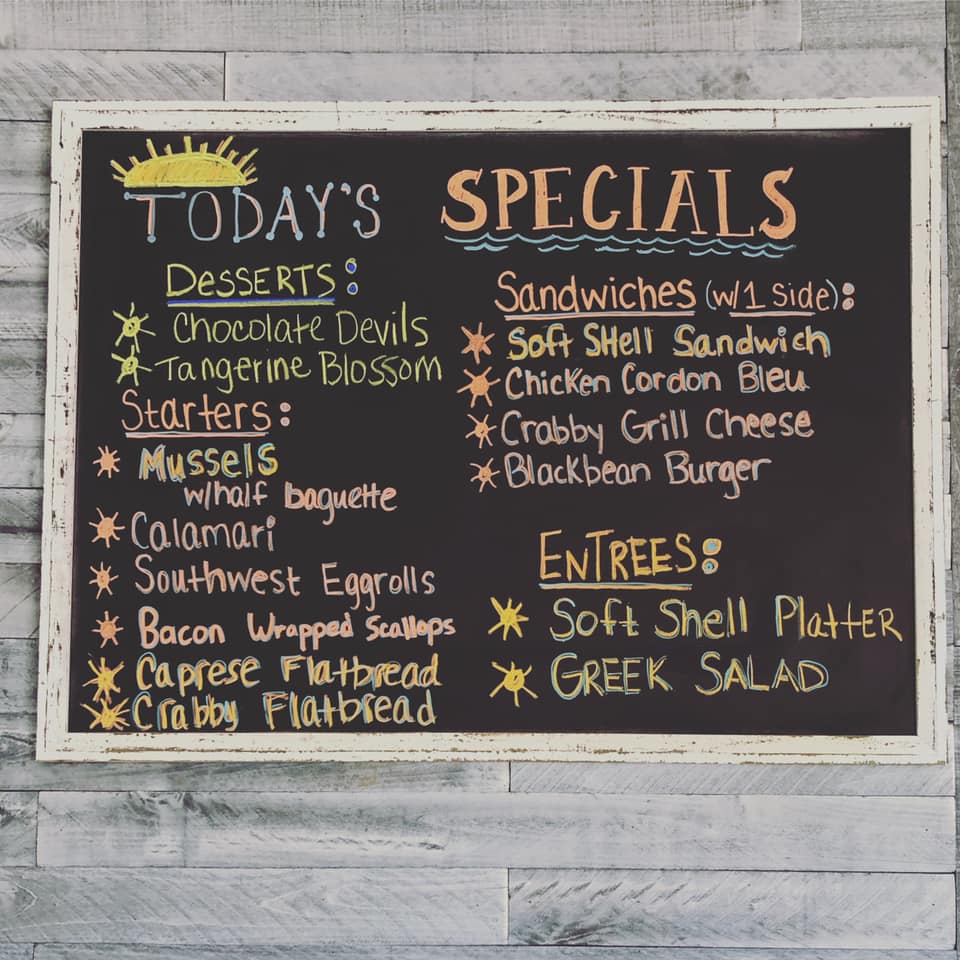 TODAY'S SPECIALS
DESSERTS:
Chocolate Devils
Tangerine Blossom
Starters:
Mussels
w/half baguette
Calamari
Southwest Eggrolls
Bacon Wrapped Scallops
Caprese Flatbread
Crabby Flatbread
Sandwiches (w/1 Side):
Soft Shell Sandwich
Chicken Cordon Bleu
Crabby Grill Cheese
Blackbean Burger
ENTREES:
Soft Shell Platter
GREEK SALAD